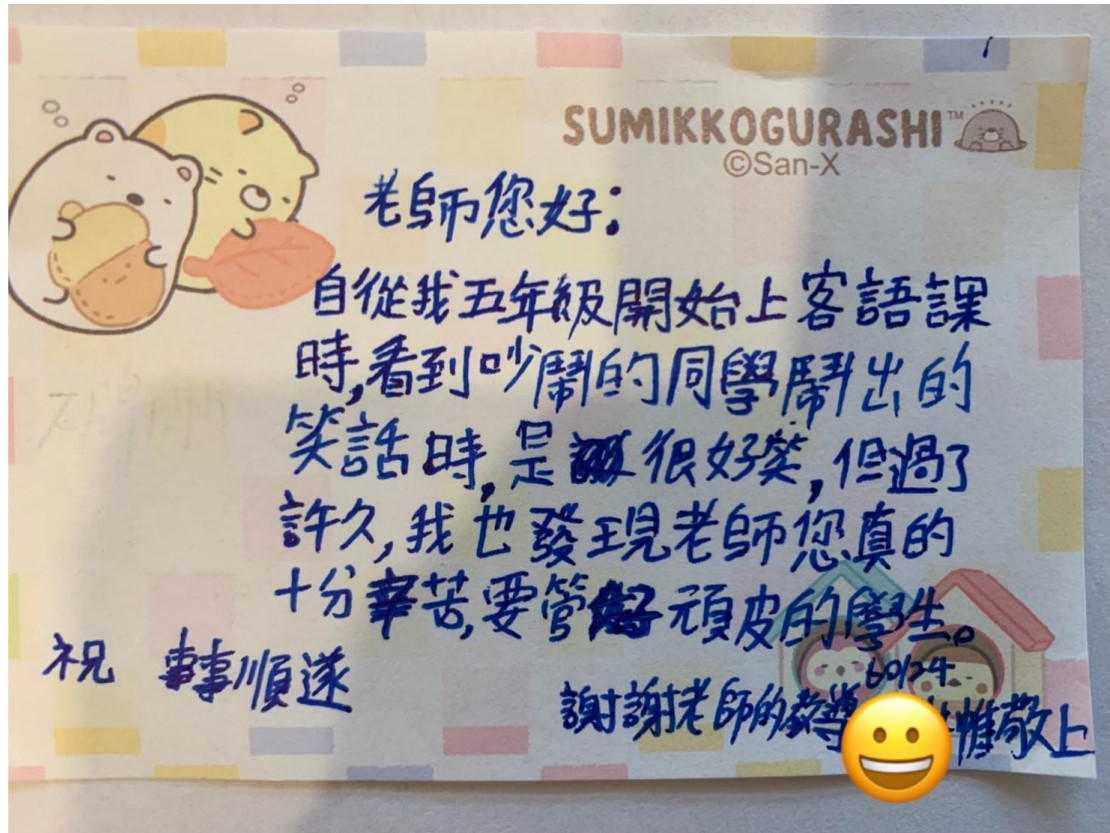 SUMIKKOGURASHI™
©San-X
老師您好：
自從我五年級開始上客語課
時,看到吵鬧的同學鬧出的
笑話時,是很好笑,但過了
許久,我也發現老師您真的
十分辛苦,要管好頑皮的學生。
祝 事事順遂
60124
謝謝老師的教導 惟敬上